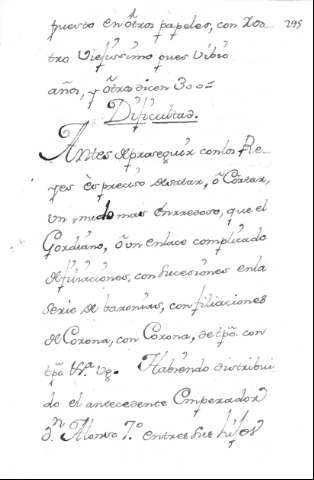 puesto en ótros papeles, con Ros- 295
tro viejissimo pues vibió
años, y ótros dicen 300=
Dificultad.
Antes de proseguir con los Re-
yes és preciso desatar, ó Cortar,
un nudo mas enrredoso, que el
Gordiáno, ó un enlace complicado
de filiaciónes, con sucesiónes en la
serie de baronias, con filiaciones
de Corona, con Corona, de tpõ. con
tpõ Vª. vg. Habiendo distribui
do el antecedente Emperador
Dn. Alonso 7.º entre sus hijos